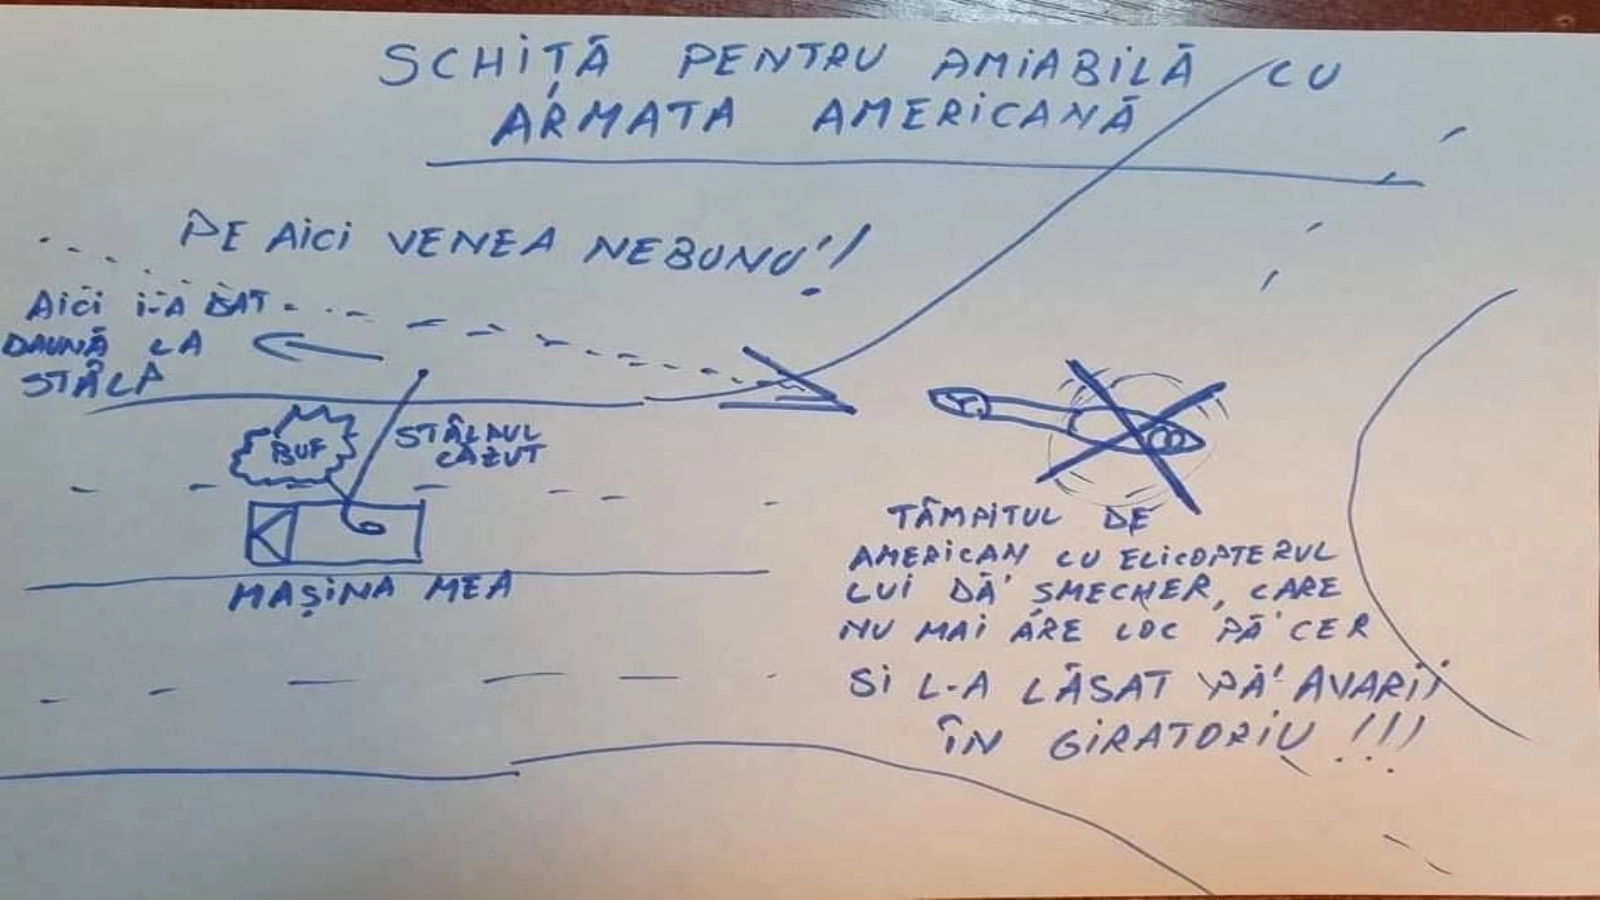 SCHIȚĂ PENTRU AMIABILĂ CU
ARMATA AMERICANĂ
PE AICI VENEA NEBUNU'!
AICI I-A DAT
DAUNĂ LA
STÂLP
BUF
STÂLPUL
CĂZUT
MAȘINA MEA
TÂMPITUL DE
AMERICAN CU ELICOPTERUL
LUI DĂ' SMECHER, CARE
NU MAI ARE LOC PĂ' CER
SI L-A LĂSAT PĂ' AVARII
ÎN GIRATORIU!!!